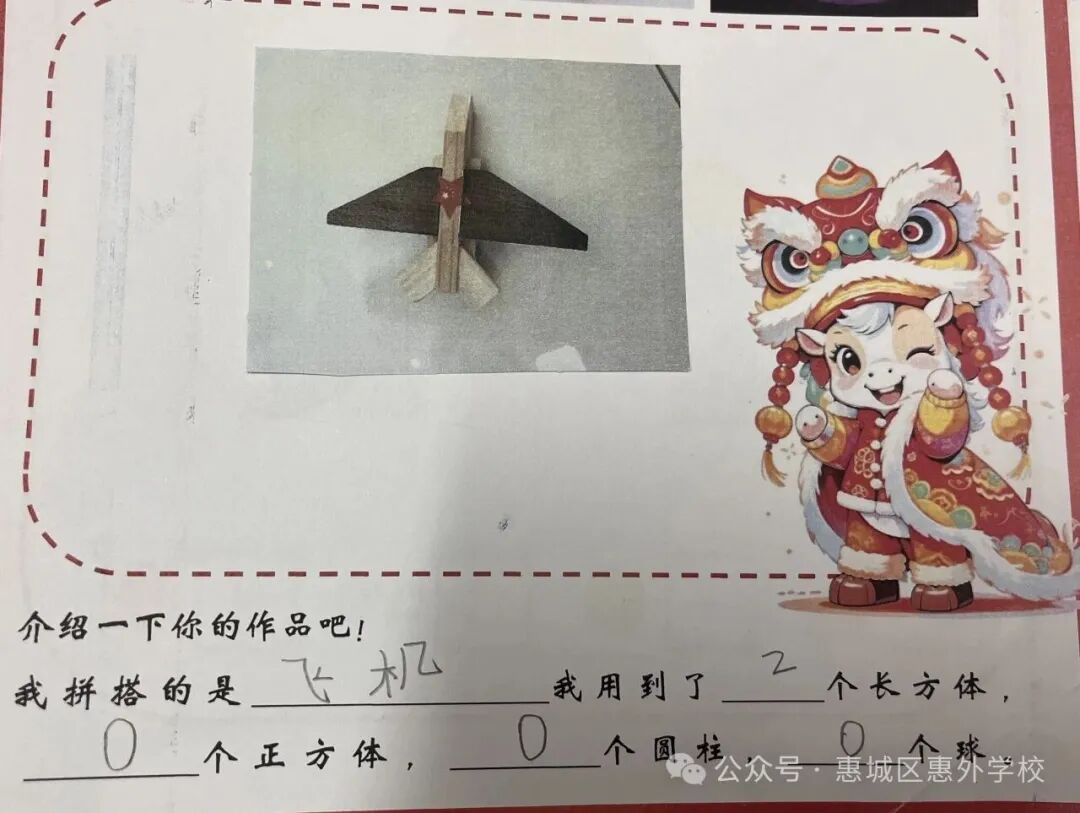 介绍一下你的作品吧!
我拼搭的是飞机我用到了2个长方体,
0个正方体,0个圆柱,0个球,
公众号·惠城区惠外学校